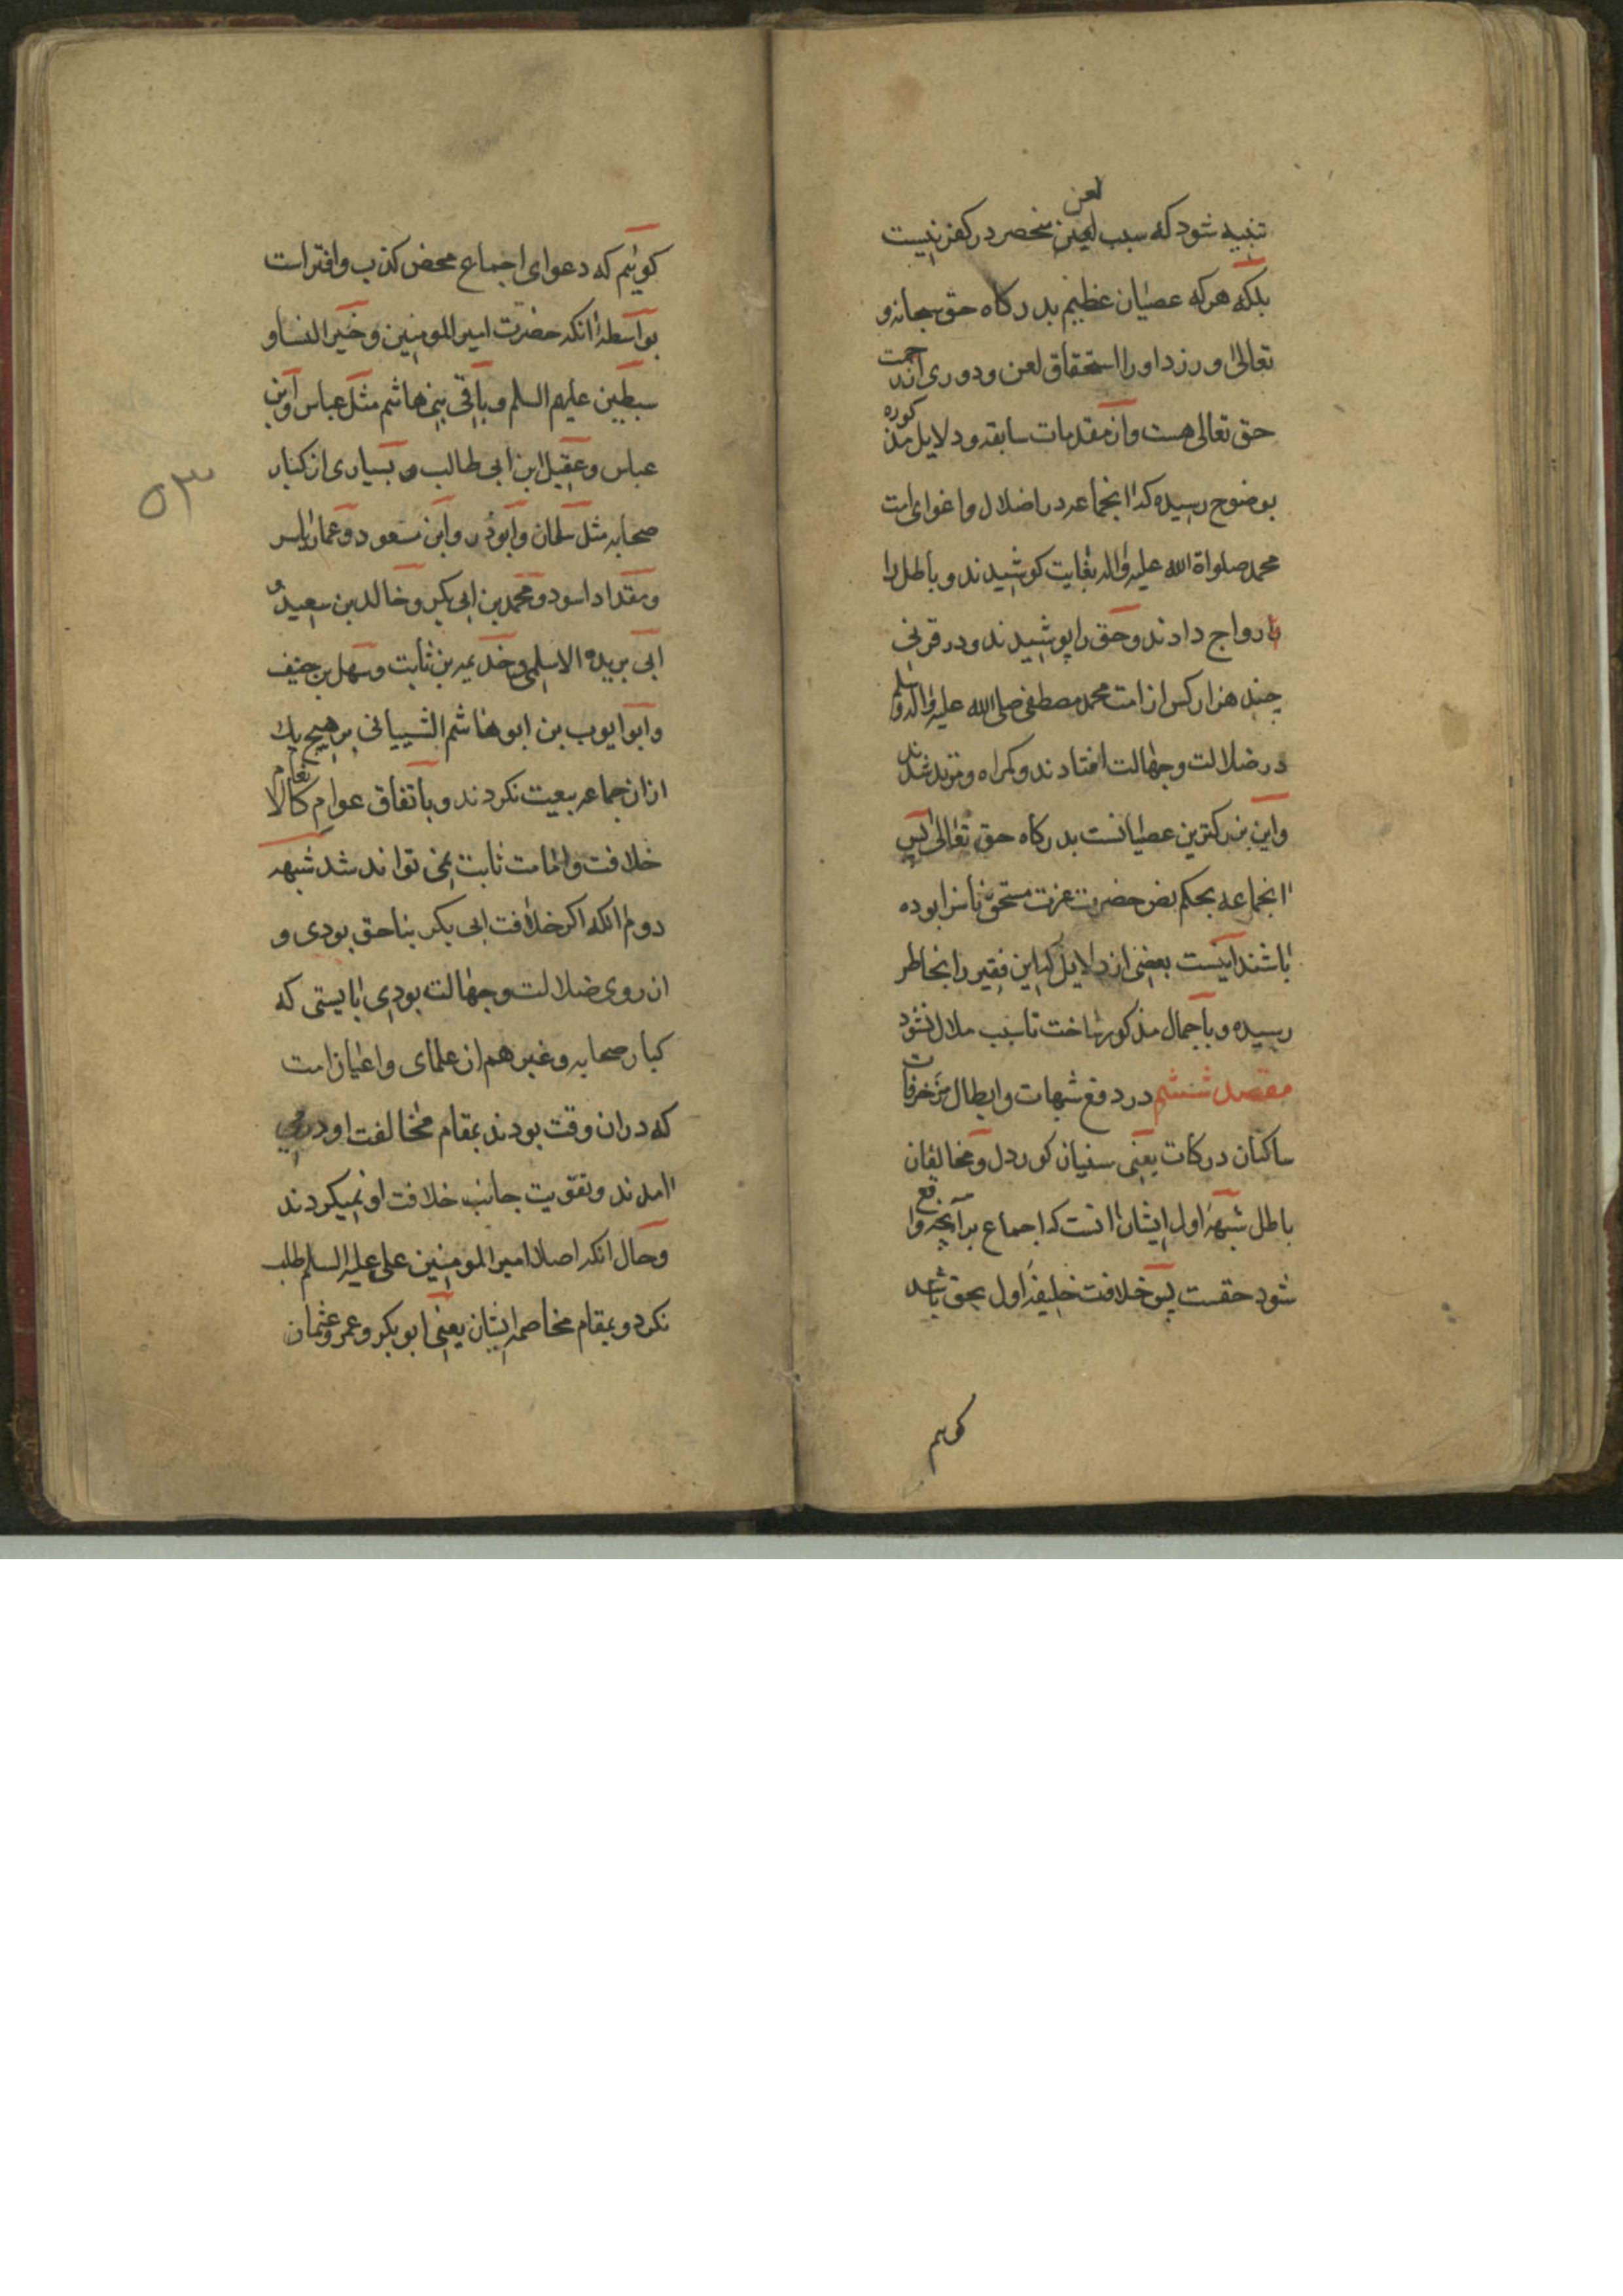 تنبیه شود که سبب لعن منحصر در کفر نیست
بلکه هرکه عصیان عظیم بدرکاه حق سبحانه و
تعالی ورزد اورا استحقاق لعن و دوری از رحمت
حق تعالی هست و از مقدمات سابقه و دلایل مذکوره
بوضوح رسیده که انجماعه در اضلال و اغوای امت
محمد صلواة الله علیه واله بغایت کوشیدند و باطل را
رواج دادند و حق را پوشیدند و در قرنی
چند هزار کس از امت محمد مصطفی صلی الله علیه واله وسلم
در ضلالت و جهالت افتادند و کمراه و مرتد شدند
و این بزرکترین عصیانست بدرکاه حق تعالی پس
انجماعه بحکم نص حضرت عزت مستحق ناسزا بوده
باشند اینست بعضی از دلایل که این فقیر را بخاطر
رسیده و باجمال مذکور ساخت تا سبب ملال نشود
مقصد ششم در دفع شبهات و ابطال مزخرفات
ساکنان درکات یعنی سنیان کوردل و مخالفان
باطل شبههٔ اول ایشان انست که اجماع برانچه واقع
شود حقست پس خلافت خلیفهٔ اول بحق باشد
کوییم
کوئیم که دعوای اجماع محض کذب و افتراست
بواسطهٔ انکه حضرت امیر المومنین و خیر النسا و
سبطین علیهم السلم و باقی بنی هاشم مثل عباس و ابن
عباس و عقیل ابن ابی طالب و بسیاری از کبار
صحابه مثل سلمان و ابوذر و ابن مسعود و عمار یاسر
و مقداد اسود و محمد بن ابی بکر و خالد بن سعید و
ابی بریده الاسلمی و خذیمه بن ثابت و سهل بن حنیف
و ابو ایوب بن ابو هاشم الشیبانی هیچ یک
ازان جماعه بیعت نکردند و باتفاق عوام کالانعام
خلافت و امامت ثابت نمی تواند شد شبهه
دوم انکه اکر خلافت ابی بکر بناحق بودی و
از روی ضلالت و جهالت بودی بایستی که
کبار صحابه و غیرهم از علمای و اعیان امت
که دران وقت بودند بمقام مخالفت او در می
امدند و تقویت جانب خلافت او نمیکردند
و حال انکه اصلا امیر المومنین علی علیه السلم طلب
نکرد و بمقام مخاصمه ایشان یعنی ابو بکر و عمر و عثمان
۵۳